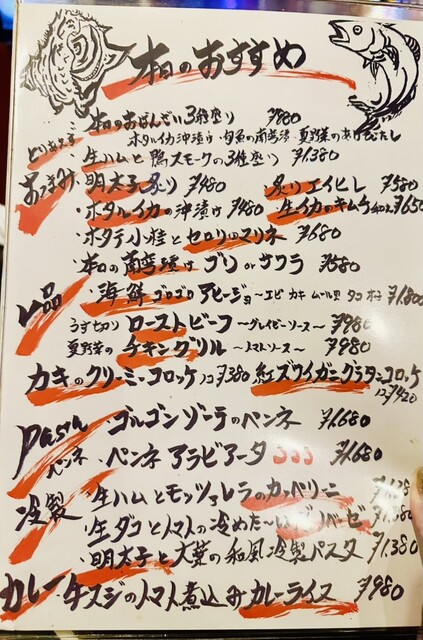 本日のおすすめ
とりあえず
・本日のおばんざい3種盛り ¥980
ホタルイカ沖漬け・旬魚の南蛮漬・夏野菜のあげびたし
・生ハムと鴨スモークの3種盛り ¥1,380
おつまみ
・明太子炙り ¥480 ・炙りエイヒレ ¥580
・ホタルイカの沖漬け ¥480 ・生イカのキムチ和え ¥650
・ホタテ小柱とセロリのマリネ ¥680
・本日の南蛮漬け ブリ or サワラ ¥580
一品
・海鮮ゴロゴロアヒージョ〜エビ カキ ムール貝 タコ ¥1,800
うす切りローストビーフ〜グレイビーソース〜 ¥980
夏野菜のチキングリル〜トマトソース〜 ¥980
カキのクリーミーコロッケ 1コ ¥380 紅ズワイガニグラタンコロッケ
1コ ¥420
Pasta
・ゴルゴンゾーラのペンネ ¥1,680
ペンネ
・ペンネアラビアータ ¥1,680
冷製
・生ハムとモッツァレラのカッペリーニ
・生ダコとトマトの冷めた〜い
・明太子と大葉の和風冷製パスタ ¥1,380
カレー
牛スジのトマト煮込みカレーライス ¥980